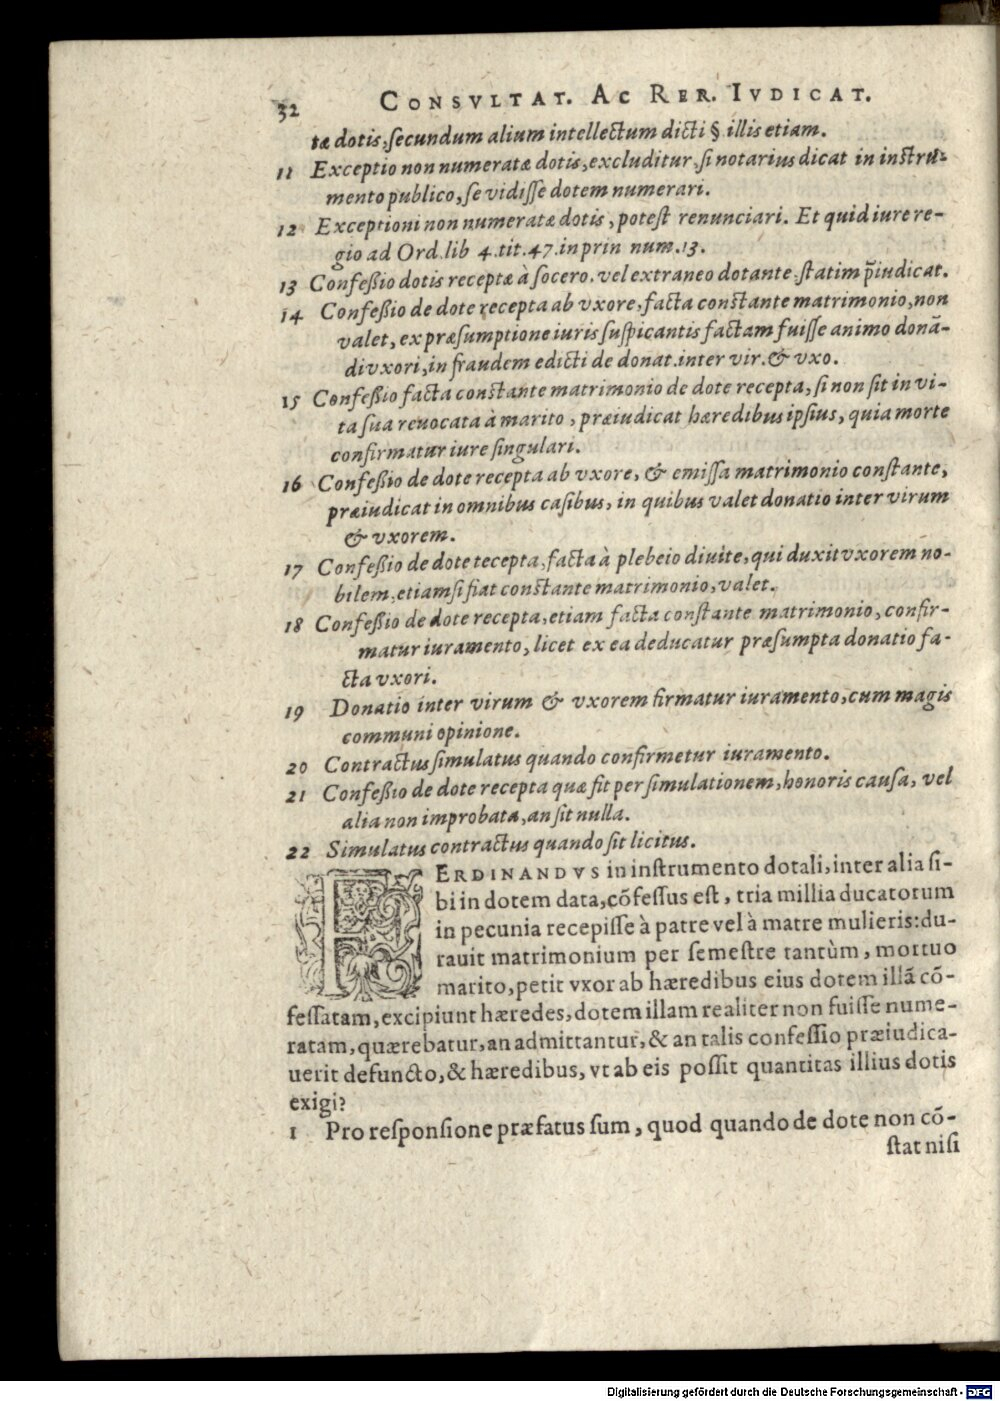 32 CONSVLTAT. AC RER. IVDICAT.
tæ dotis, ſecundum alium intellectum dicti § illis etiam.
11 Exceptio non numeratæ dotis, excluditur, ſi notarius dicat in inſtru-
mento publico, ſe vidiſſe dotem numerari.
12 Exceptioni non numeratæ dotis, poteſt renunciari. Et quid iure re-
gio ad Ord. lib 4. tit. 47. in prin num. 13.
13 Confeßio dotis receptæ à ſocero, vel extraneo dotante, ſtatim p̃iudicat.
14 Confeßio de dote recepta ab vxore, facta conſtante matrimonio, non
valet, ex præſumptione iuris ſuſpicantis factam fuiſſe animo donã-
di vxori, in fraudem edicti de donat. inter vir. & vxo.
15 Confeßio facta conſtante matrimonio de dote recepta, ſi non ſit in vi-
ta ſua reuocata à marito, præiudicat hæredibus ipſius, quia morte
confirmatur iure ſingulari.
16 Confeßio de dote recepta ab vxore, & emiſſa matrimonio conſtante,
præiudicat in omnibus caſibus, in quibus valet donatio inter virum
& vxorem.
17 Confeßio de dote tecepta, facta à plebeio diuite, qui duxit vxorem no-
bilem, etiamſi fiat conſtante matrimonio, valet.
18 Confeßio de dote recepta, etiam facta conſtante matrimonio, confir-
matur iuramento, licet ex ea deducatur præſumpta donatio fa-
cta vxori.
19 Donatio inter virum & vxorem firmatur iuramento, cum magis
communi opinione.
20 Contractus ſimulatus quando confirmetur iuramento.
21 Confeßio de dote recepta quæ fit per ſimulationem, honoris cauſa, vel
alia non improbata, an ſit nulla.
22 Simulatus contractus quando ſit licitus.
FERDINANDVS in inſtrumento dotali, inter alia ſi-
bi in dotem data, cõfeſſus eſt, tria millia ducatorum
in pecunia recepiſſe à patre vel à matre mulieris: du-
rauit matrimonium per ſemeſtre tantùm, mortuo
marito, petit vxor ab hæredibus eius dotem illã cõ-
feſſatam, excipiunt hæredes, dotem illam realiter non fuiſſe nume-
ratam, quærebatur, an admittantur, & an talis confeſſio præiudica-
uerit defuncto, & hæredibus, vt ab eis poſſit quantitas illius dotis
exigi?
1 Pro reſponſione præfatus ſum, quod quando de dote non cõ-
ſtat niſi
Digitalisierung gefördert durch die Deutsche Forschungsgemeinschaft - DFG